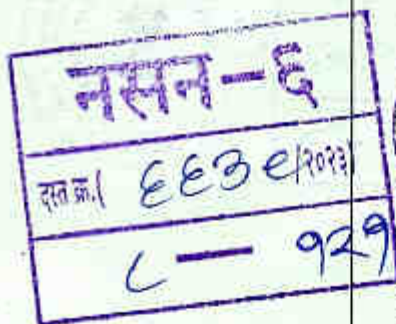 नसन-६
दस्त क्र.( ६६३९/२०२३)
८ — १२१